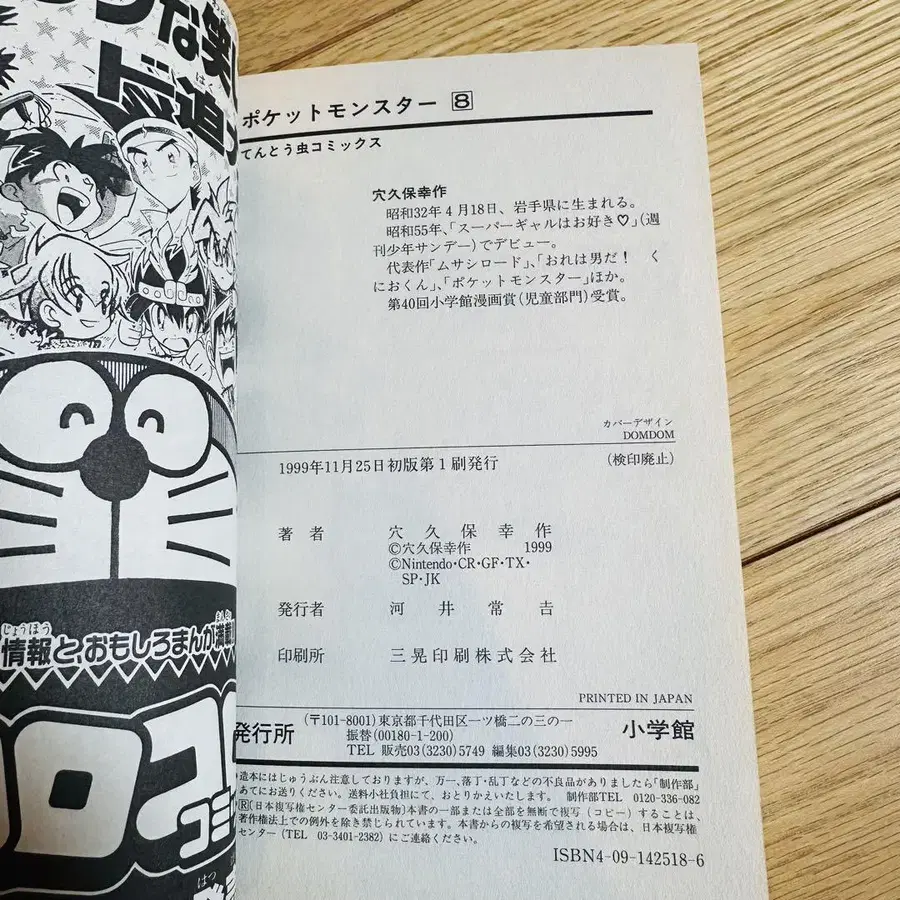 な笑
ド迫
はく
じょうほう
情報と、おもしろまんが満載
まんさい
コロコロ
コミ
はつ
ポケットモンスター 8
てんとう虫コミックス
穴久保幸作
昭和32年4月18日、岩手県に生まれる。
昭和55年、「スーパーギャルはお好き♡」(週
刊少年サンデー)でデビュー。
代表作「ムサシロード」、「おれは男だ! く
におくん」、「ポケットモンスター」ほか。
第40回小学館漫画賞(児童部門)受賞。
カバーデザイン
DOMDOM
1999年11月25日初版第1刷発行
(検印廃止)
著者 穴久保幸作
©穴久保幸作 1999
©Nintendo・CR・GF・TX・
SP・JK
発行者 河井常吉
印刷所 三晃印刷株式会社
PRINTED IN JAPAN
発行所 (〒101-8001)東京都千代田区一ツ橋二の三の一 小学館
振替(00180-1-200)
TEL 販売03(3230)5749 編集03(3230)5995
造本にはじゅうぶん注意しておりますが、万一、落丁・乱丁などの不良品がありましたら「制作部」
あてにお送りください。送料小社負担にて、おとりかえいたします。 制作部TEL 0120-336-082
R〔日本複写権センター委託出版物〕本書の一部または全部を無断で複写(コピー)することは、
著作権法上での例外を除き禁じられています。本書からの複写を希望される場合は、日本複写権
センター(TEL 03-3401-2382)にご連絡ください。
ISBN4-09-142518-6